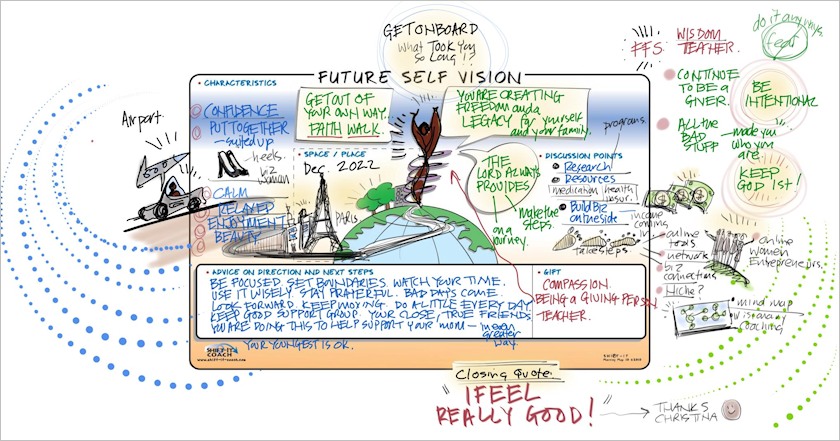 GET ON BOARD
What TOOK YOU
SO LONG!?
FUTURE SELF VISION
CHARACTERISTICS
CONFIDENCE
PUT TOGETHER
- suited up
heels
biz
woman
CALM
RELAXED
ENJOYMENT
BEAUTY
Airport
GET OUT OF
YOUR OWN WAY.
FAITH WALK.
SPACE / PLACE
Dec. 2022
PARIS
YOU ARE CREATING
FREEDOM and a
LEGACY for yourself
and your family.
THE
LORD ALWAYS
PROVIDES.
make the
steps.
on a
journey.
programs.
DISCUSSION POINTS
Research
Resources
medication health
insur.
Build Biz
on the side
income
coming
in
take steps.
online
tools
network
biz
connections
Niche?
online
women
Entrepreneurs.
mind map
coaching
FFS.
WISDOM
TEACHER.
do it anyway.
fear
CONTINUE
TO BE A
GIVER.
ALL the
BAD
STUFF
- made you
who you
are.
BE
INTENTIONAL
KEEP
GOD 1st!
ADVICE ON DIRECTION AND NEXT STEPS
BE FOCUSED. SET BOUNDARIES. WATCH YOUR TIME.
USE IT WISELY. STAY PRAYERFUL. BAD DAYS COME.
LOOK FORWARD. KEEP MOVING. DO A LITTLE EVERY DAY
KEEP GOOD SUPPORT GROUP. YOUR CLOSE/TRUE FRIENDS
YOU ARE DOING THIS TO HELP SUPPORT YOUR MOM -
in even
greater
way.
YOUR YOUNGEST IS OK.
GIFT
COMPASSION.
BEING A GIVING PERSON
TEACHER.
SHIFT-IT
COACH
www.shift-it-coach.com
SHIFT-IT
Closing Quote:
I FEEL
REALLY GOOD!
THANKS
CHRISTINA